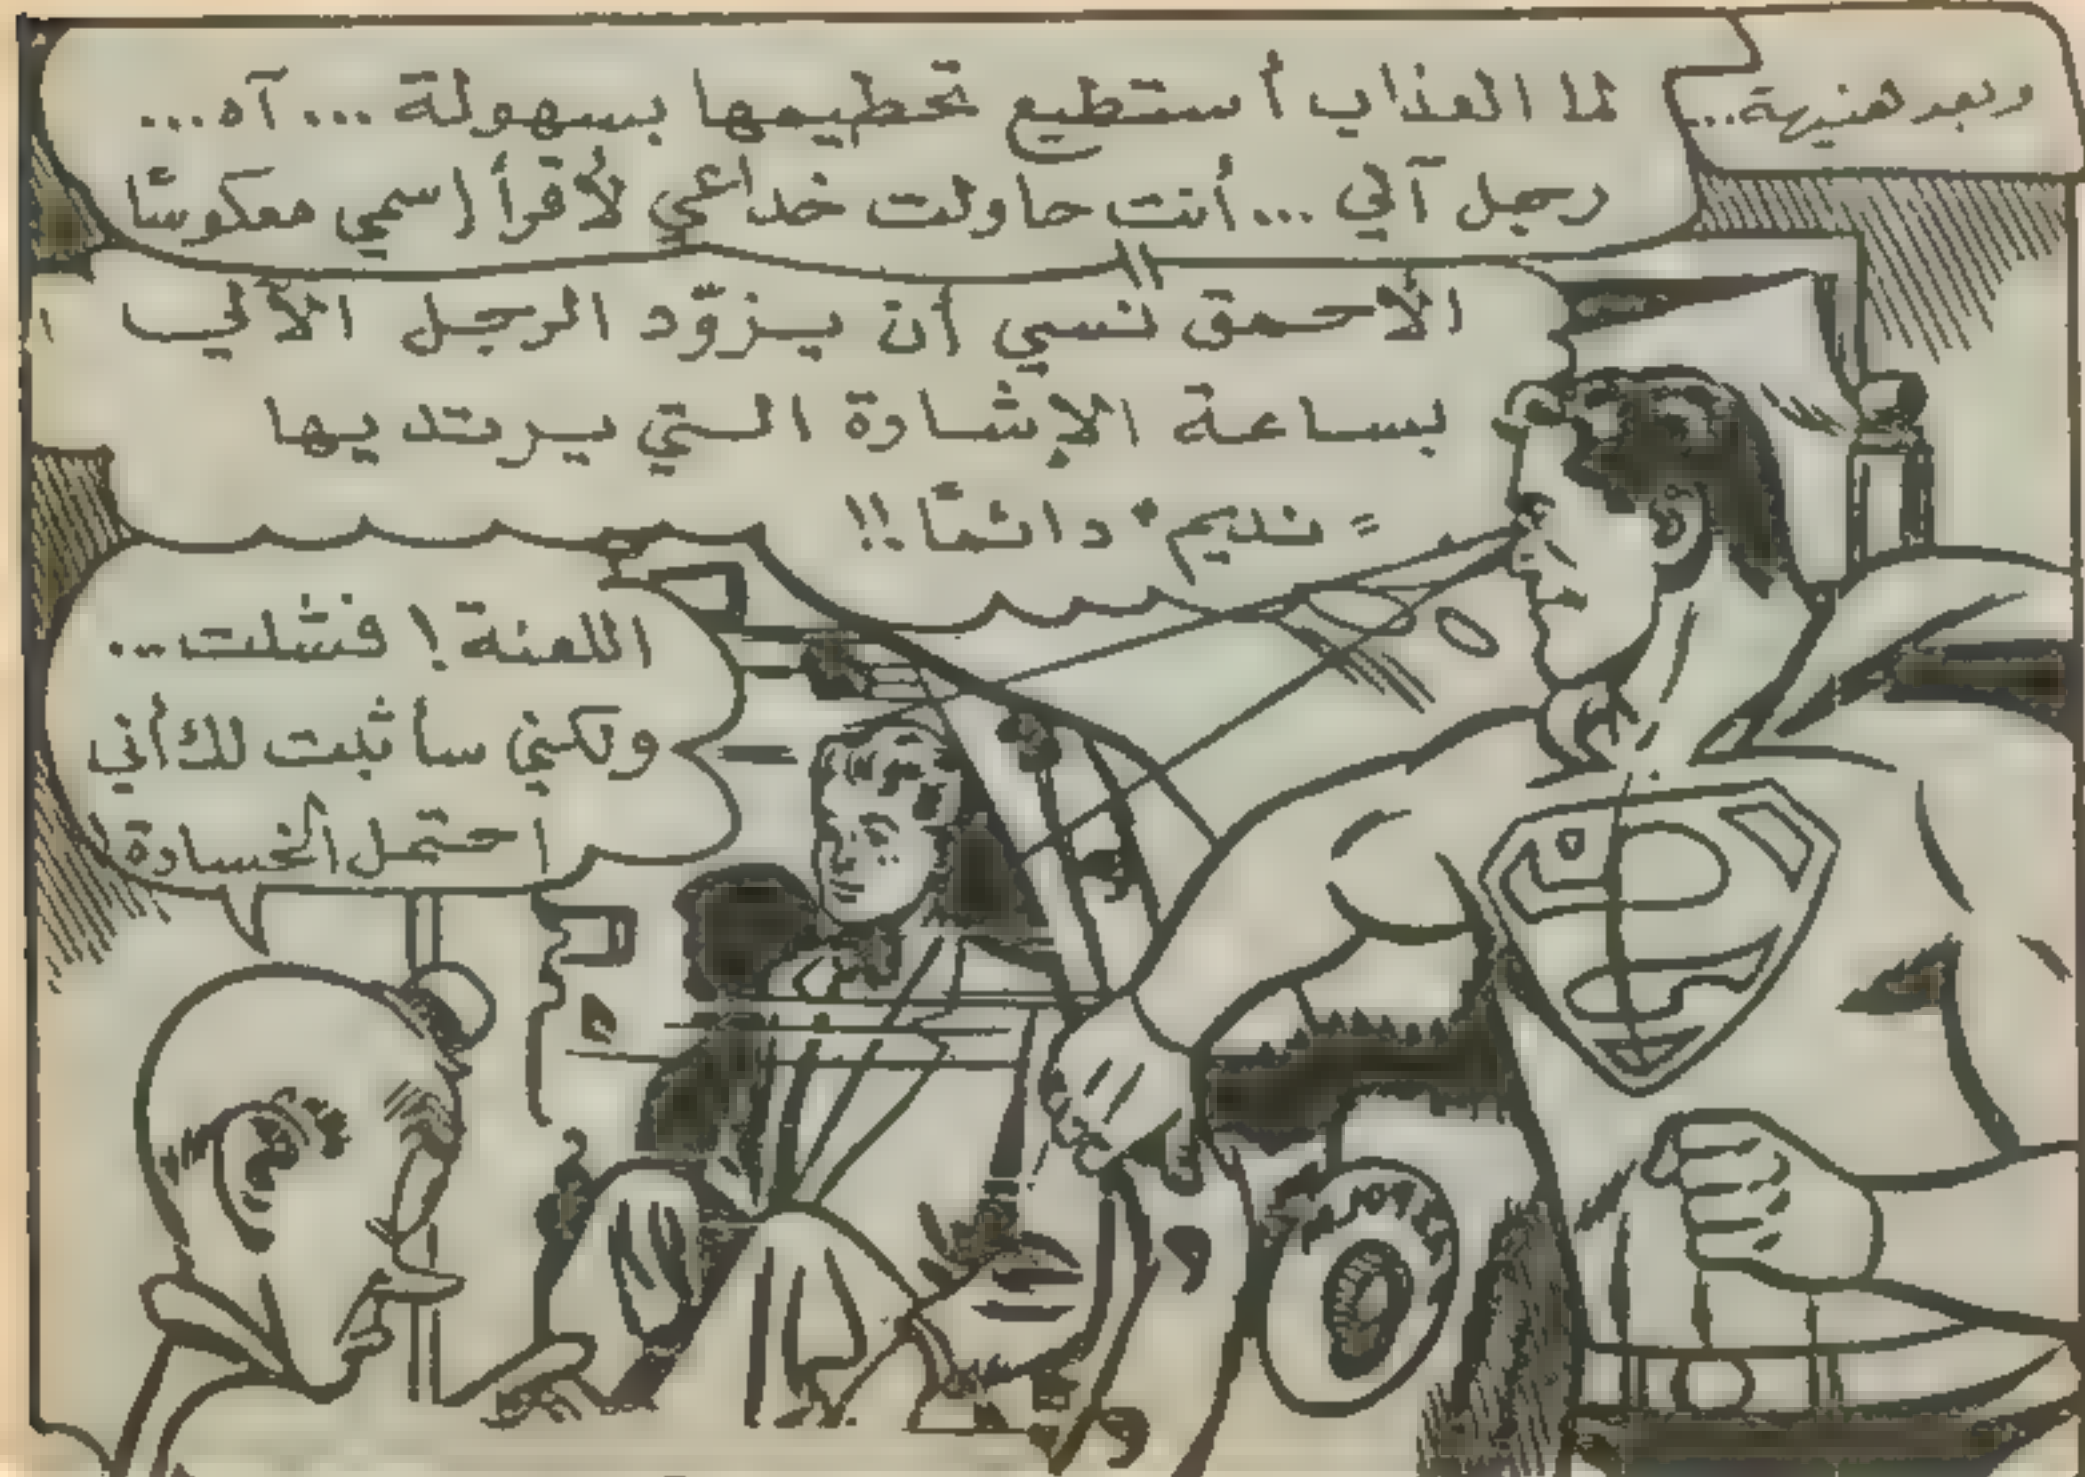 وبعد هنيهة...
لما العذاب أستطيع تحطيمها بسهولة... آه...
رجل آلي... أنت حاولت خداعي لأقرأ إسمي معكوسًا
الأحمق نسي أن يزوّد الرجل الآلي
بساعة الإشارة التي يرتديها
"نديم" دائمًا!!
اللعنة! فشلت...
ولكني سأثبت لك أني
احتمل الخسارة!